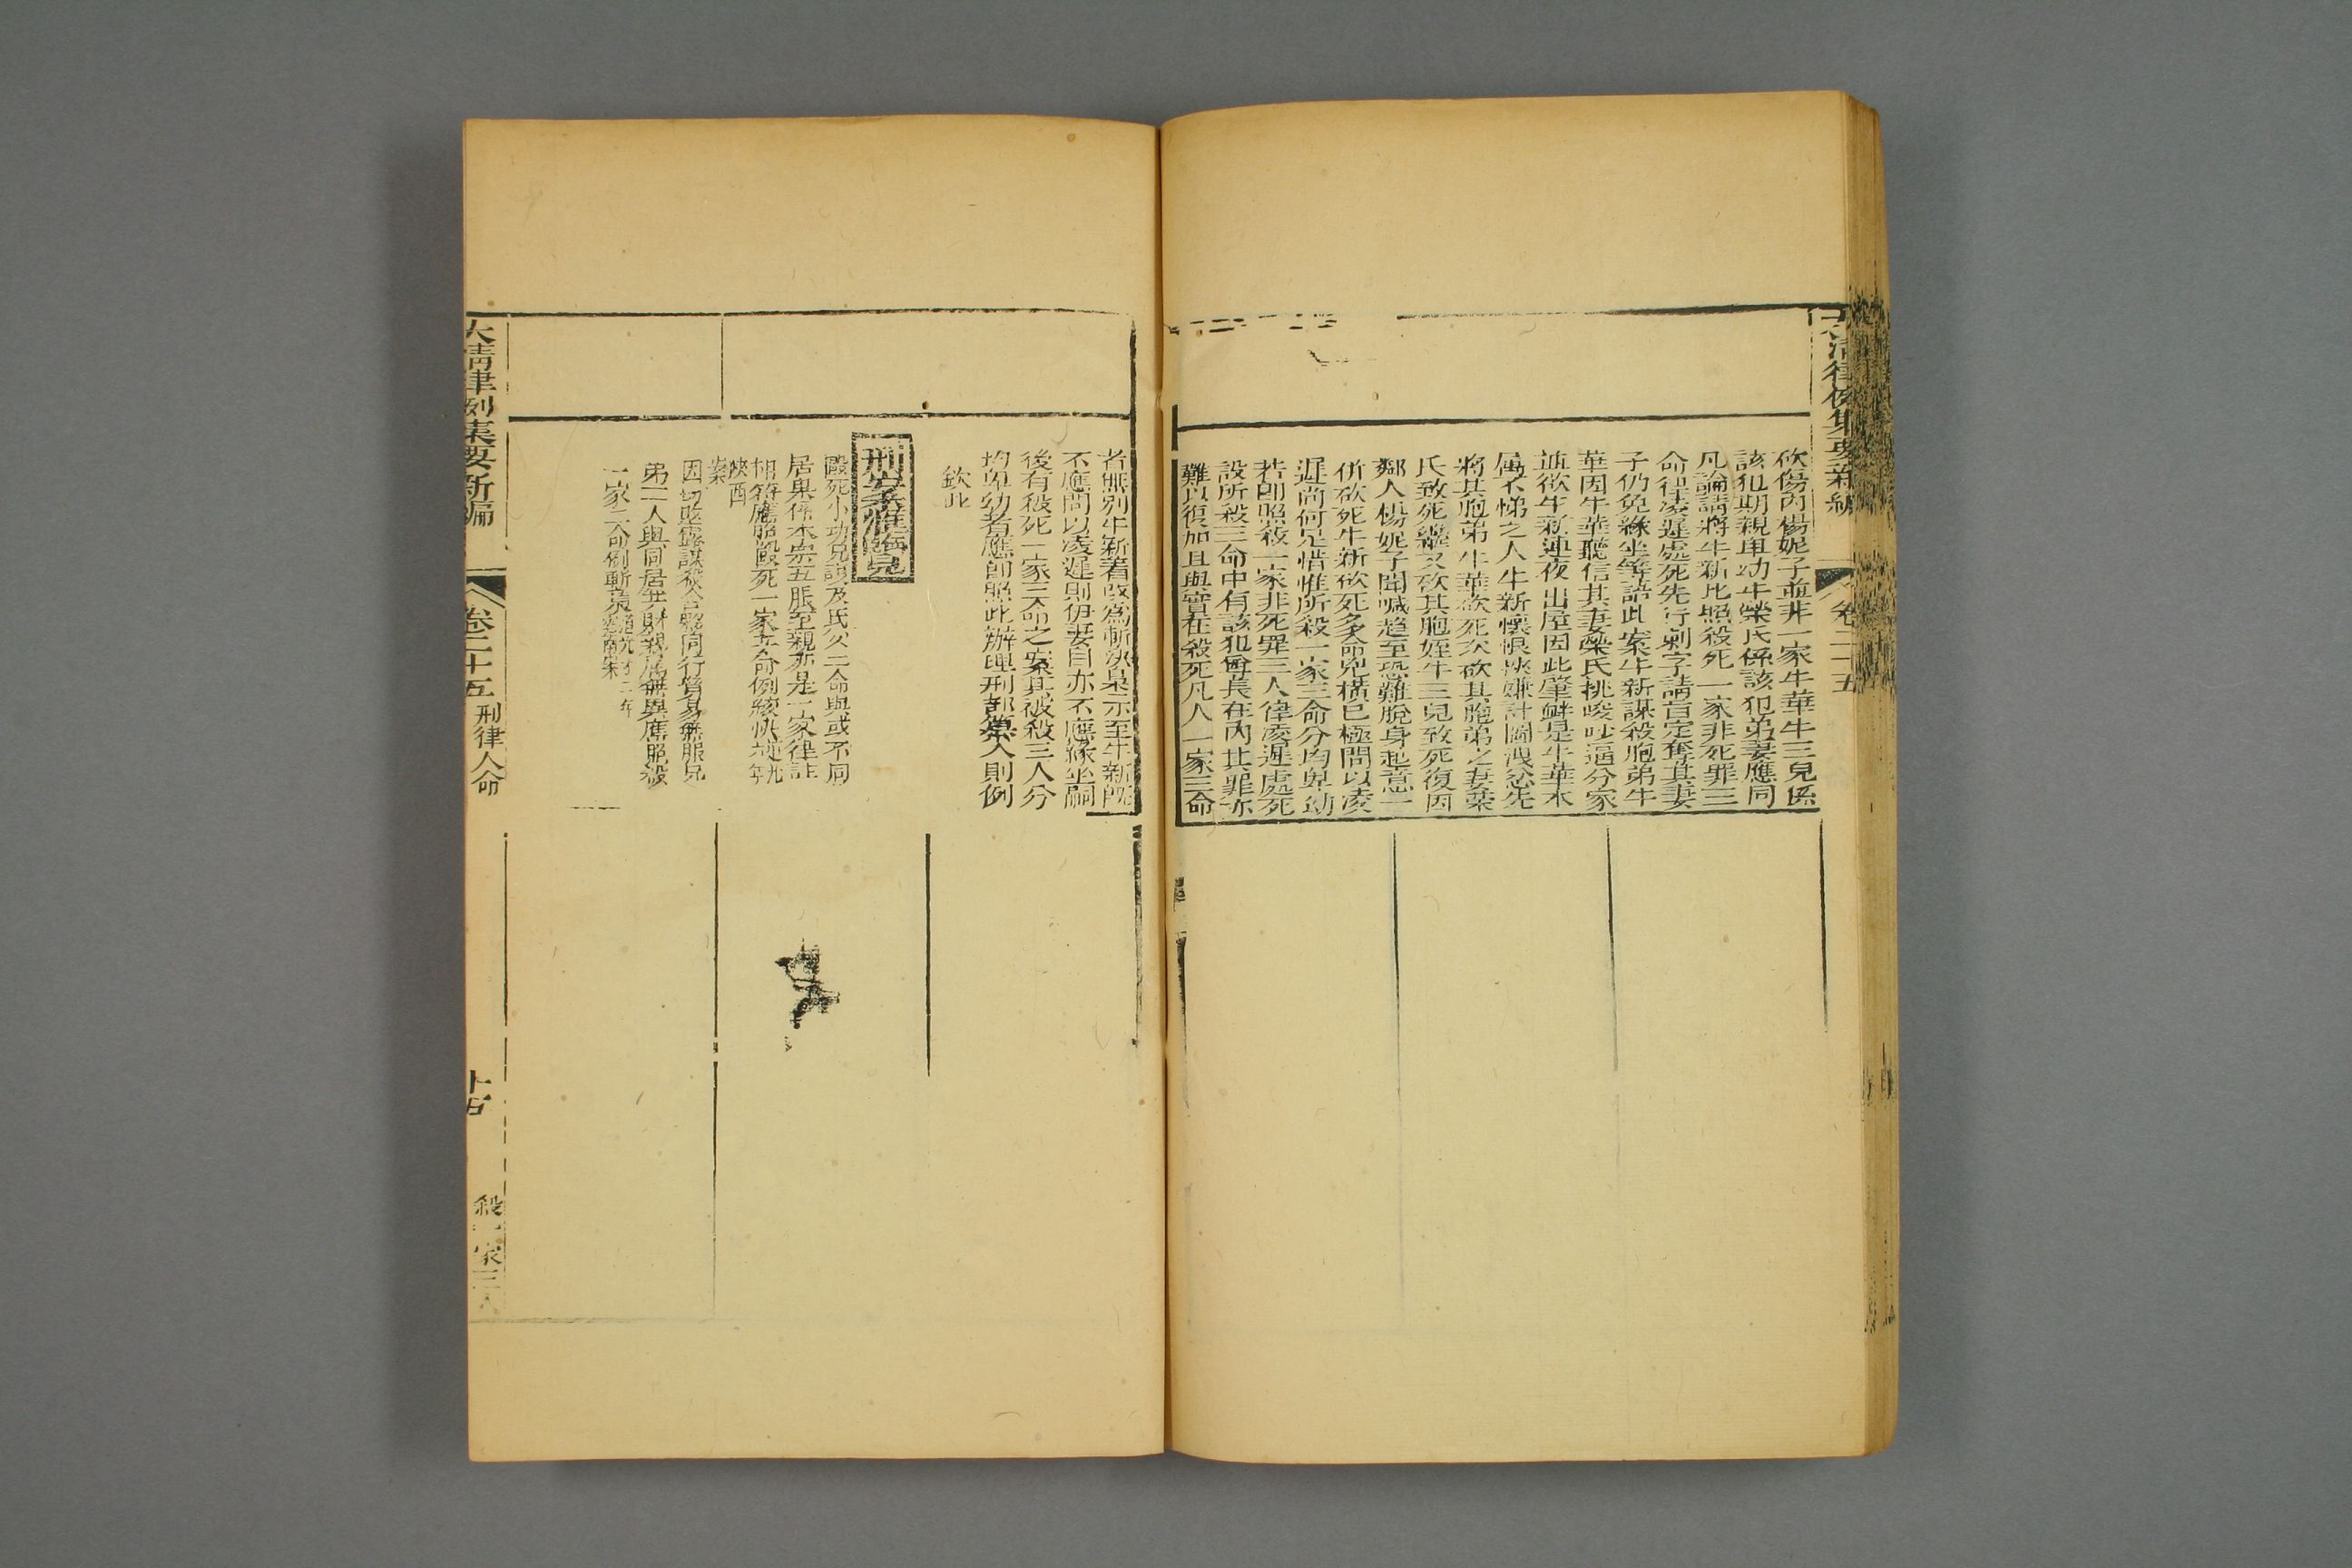 大清律例集要新編
卷二十五
砍傷內楊妮子並非一家牛華牛三兒係
該犯期親卑幼牛欒氏係該犯弟妻應同
凡論請將牛新比照殺死一家非死罪三
命律凌遲處死先行刺字請旨定奪其妻
子仍免緣坐等語此案牛新謀殺胞弟牛
華因牛華聽信其妻欒氏挑峻吵逼分家
並欲牛新連夜出屋因此肇衅是牛華本
屬不悌之人牛新懷恨挾嫌計圖洩忿先
將其胞弟牛華砍死次砍其胞弟之妻欒
氏致死繼又砍其胞姪牛三兒致死復因
鄰人楊妮子聞喊趨至恐難脫身起意一
併砍死牛新砍死多命兇橫已極問以凌
遲尚何足惜惟所殺一家三命分均卑幼
若卽照殺一家非死罪三人律凌遲處死
設所殺三命中有該犯尊長在內其罪亦
難以復加且與實在殺死凡人一家三命
者無別牛新着改爲斬決梟示至牛新旣
不應問以凌遲則伊妻自亦不應緣坐嗣
後有殺死一家三命之案其被殺三人分
均卑幼者應卽照此辦理刑部纂入則例
欽此
刑案滙覽
毆死小功兄誤及氏父二命與或不同
居果係本宗五服至親亦是一家律註
相符應照毆死一家二命例絞決 道光九年
陝西
案
因切脏露謀殺合夥同行貿易無服兄
弟二人與同居共財親屬無異應照殺
一家二命例斬梟 道光十二年雲南案
大清律例集要新編
卷二十五 刑律人命
殺一家三人